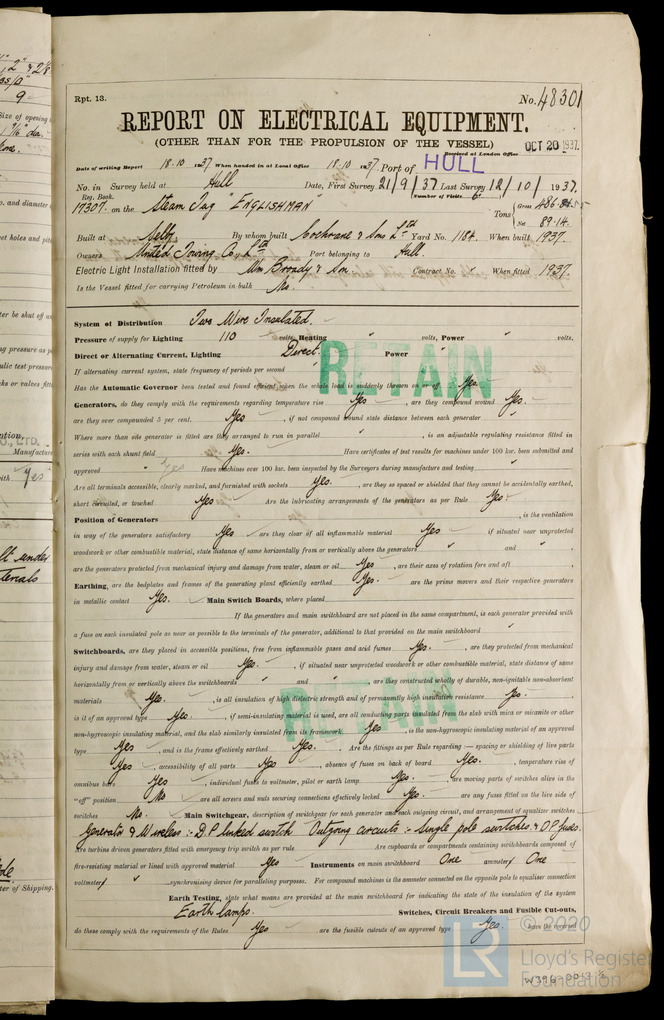 Rpt. 13.
No. 48301
REPORT ON ELECTRICAL EQUIPMENT.
(OTHER THAN FOR THE PROPULSION OF THE VESSEL)
Received at London Office OCT 20 1937
Date of writing Report 18.10 1937 When handed in at Local Office 18.10 1937 Port of HULL
No. in Survey held at Hull Date, First Survey 21/9/37 Last Survey 12/10/1937.
Reg. Book. Number of Visits 6
19307 on the Steam Tug "ENGLISHMAN" Tons Gross 486.84
Net 89.14
Built at Selby By whom built Cochrane & Sons Ltd Yard No. 1184 When built 1937.
Owners United Towing Co Ltd Port belonging to Hull.
Electric Light Installation fitted by Wm Broady & Son Contract No. When fitted 1937.
Is the Vessel fitted for carrying Petroleum in bulk No.
System of Distribution Two Wire Insulated.
Pressure of supply for Lighting 110 volts, Heating " volts, Power " volts.
Direct or Alternating Current, Lighting Direct. Power "
RETAIN
If alternating current system, state frequency of periods per second
Has the Automatic Governor been tested and found efficient when the whole load is suddenly thrown on or off Yes.
Generators, do they comply with the requirements regarding temperature rise Yes, are they compound wound Yes.
are they over compounded 5 per cent. Yes, if not compound wound state distance between each generator
Where more than one generator is fitted are they arranged to run in parallel ", is an adjustable regulating resistance fitted in
series with each shunt field Yes. Have certificates of test results for machines under 100 kw. been submitted and
approved " Yes Have machines over 100 kw. been inspected by the Surveyors during manufacture and testing "
Are all terminals accessible, clearly marked, and furnished with sockets Yes. are they so spaced or shielded that they cannot be accidentally earthed,
short circuited, or touched Yes Are the lubricating arrangements of the generators as per Rule Yes.
Position of Generators , is the ventilation
in way of the generators satisfactory Yes are they clear of all inflammable material Yes if situated near unprotected
woodwork or other combustible material, state distance of same horizontally from or vertically above the generators " and "
are the generators protected from mechanical injury and damage from water, steam or oil Yes, are their axes of rotation fore and aft
Earthing, are the bedplates and frames of the generating plant efficiently earthed Yes. are the prime movers and their respective generators
in metallic contact Yes. Main Switch Boards, where placed
If the generators and main switchboard are not placed in the same compartment, is each generator provided with
a fuse on each insulated pole as near as possible to the terminals of the generator, additional to that provided on the main switchboard "
Switchboards, are they placed in accessible positions, free from inflammable gases and acid fumes Yes., are they protected from mechanical
injury and damage from water, steam or oil Yes., if situated near unprotected woodwork or other combustible material, state distance of same
horizontally from or vertically above the switchboards " and ", are they constructed wholly of durable, non-ignitable non-absorbent
materials Yes., is all insulation of high dielectric strength and of permanently high insulation resistance Yes.
RETAIN
is it of an approved type Yes, if semi-insulating material is used, are all conducting parts insulated from the slab with mica or micanite or other
non-hygroscopic insulating material, and the slab similarly insulated from its framework Yes, is the non-hygroscopic insulating material of an approved
type Yes, and is the frame effectively earthed Yes. Are the fittings as per Rule regarding:— spacing or shielding of live parts
Yes, accessibility of all parts Yes, absence of fuses on back of board Yes., temperature rise of
omnibus bars Yes, individual fuses to voltmeter, pilot or earth lamp Yes. are moving parts of switches alive in the
"off" position No are all screws and nuts securing connections effectively locked Yes. are any fuses fitted on the live side of
switches No. Main Switchgear, description of switchgear for each generator and each outgoing circuit, and arrangement of equalizer switches
Generator & Wireless :- D.P. linked switch Outgoing circuits :- single pole switches & D.P. fuses.
Are turbine driven generators fitted with emergency trip switch as per rule Are cupboards or compartments containing switchboards composed of
fire-resisting material or lined with approved material Yes Instruments on main switchboard One ammeter One
voltmeter " synchronising device for paralleling purposes. For compound machines is the ammeter connected on the opposite pole to equaliser connection
Earth Testing, state what means are provided at the main switchboard for indicating the state of the insulation of the system
Earth lamps. Switches, Circuit Breakers and Fusible Cut-outs,
do these comply with the requirements of the Rules Yes, are the fusible cutouts of an approved type Yes. have the reversed
© 2020
LR
Lloyd's Register
Foundation